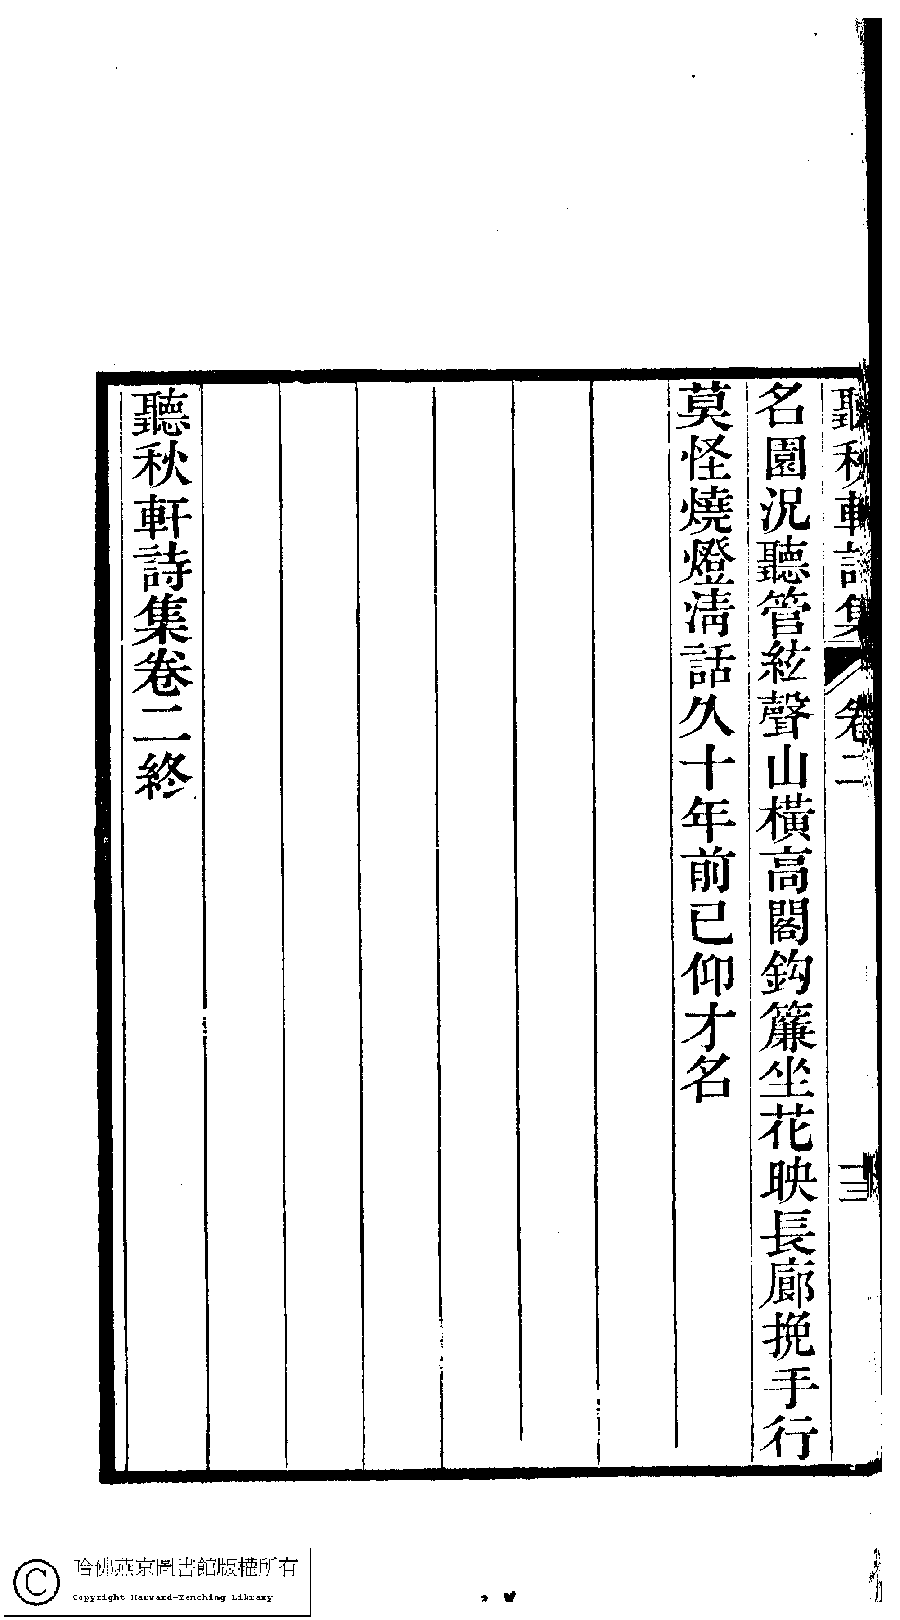 聽秋軒詩集 卷二 十三
名園況聽管絃聲山橫高閣鈎簾坐花映長廊挽手行
莫怪燒燈淸話久十年前已仰才名
聽秋軒詩集卷二終
哈佛燕京圖書館版權所有
Copyright Harvard-Yenching Library